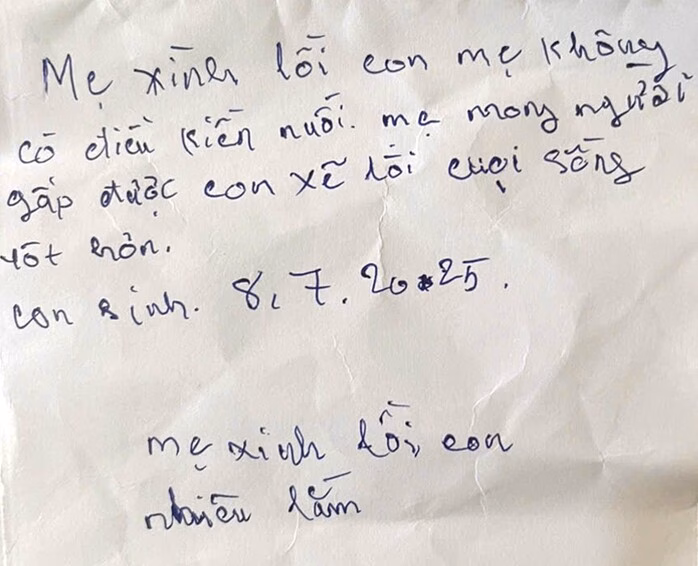 Mẹ xình lỗi con mẹ không
có điều kiến nuôi. mẹ mong người
gấp được con xẽ lối cuọi sống
tốt hơn.
con sinh. 8, 7. 2025.
mẹ xinh lỗi, con
nhiều lắm